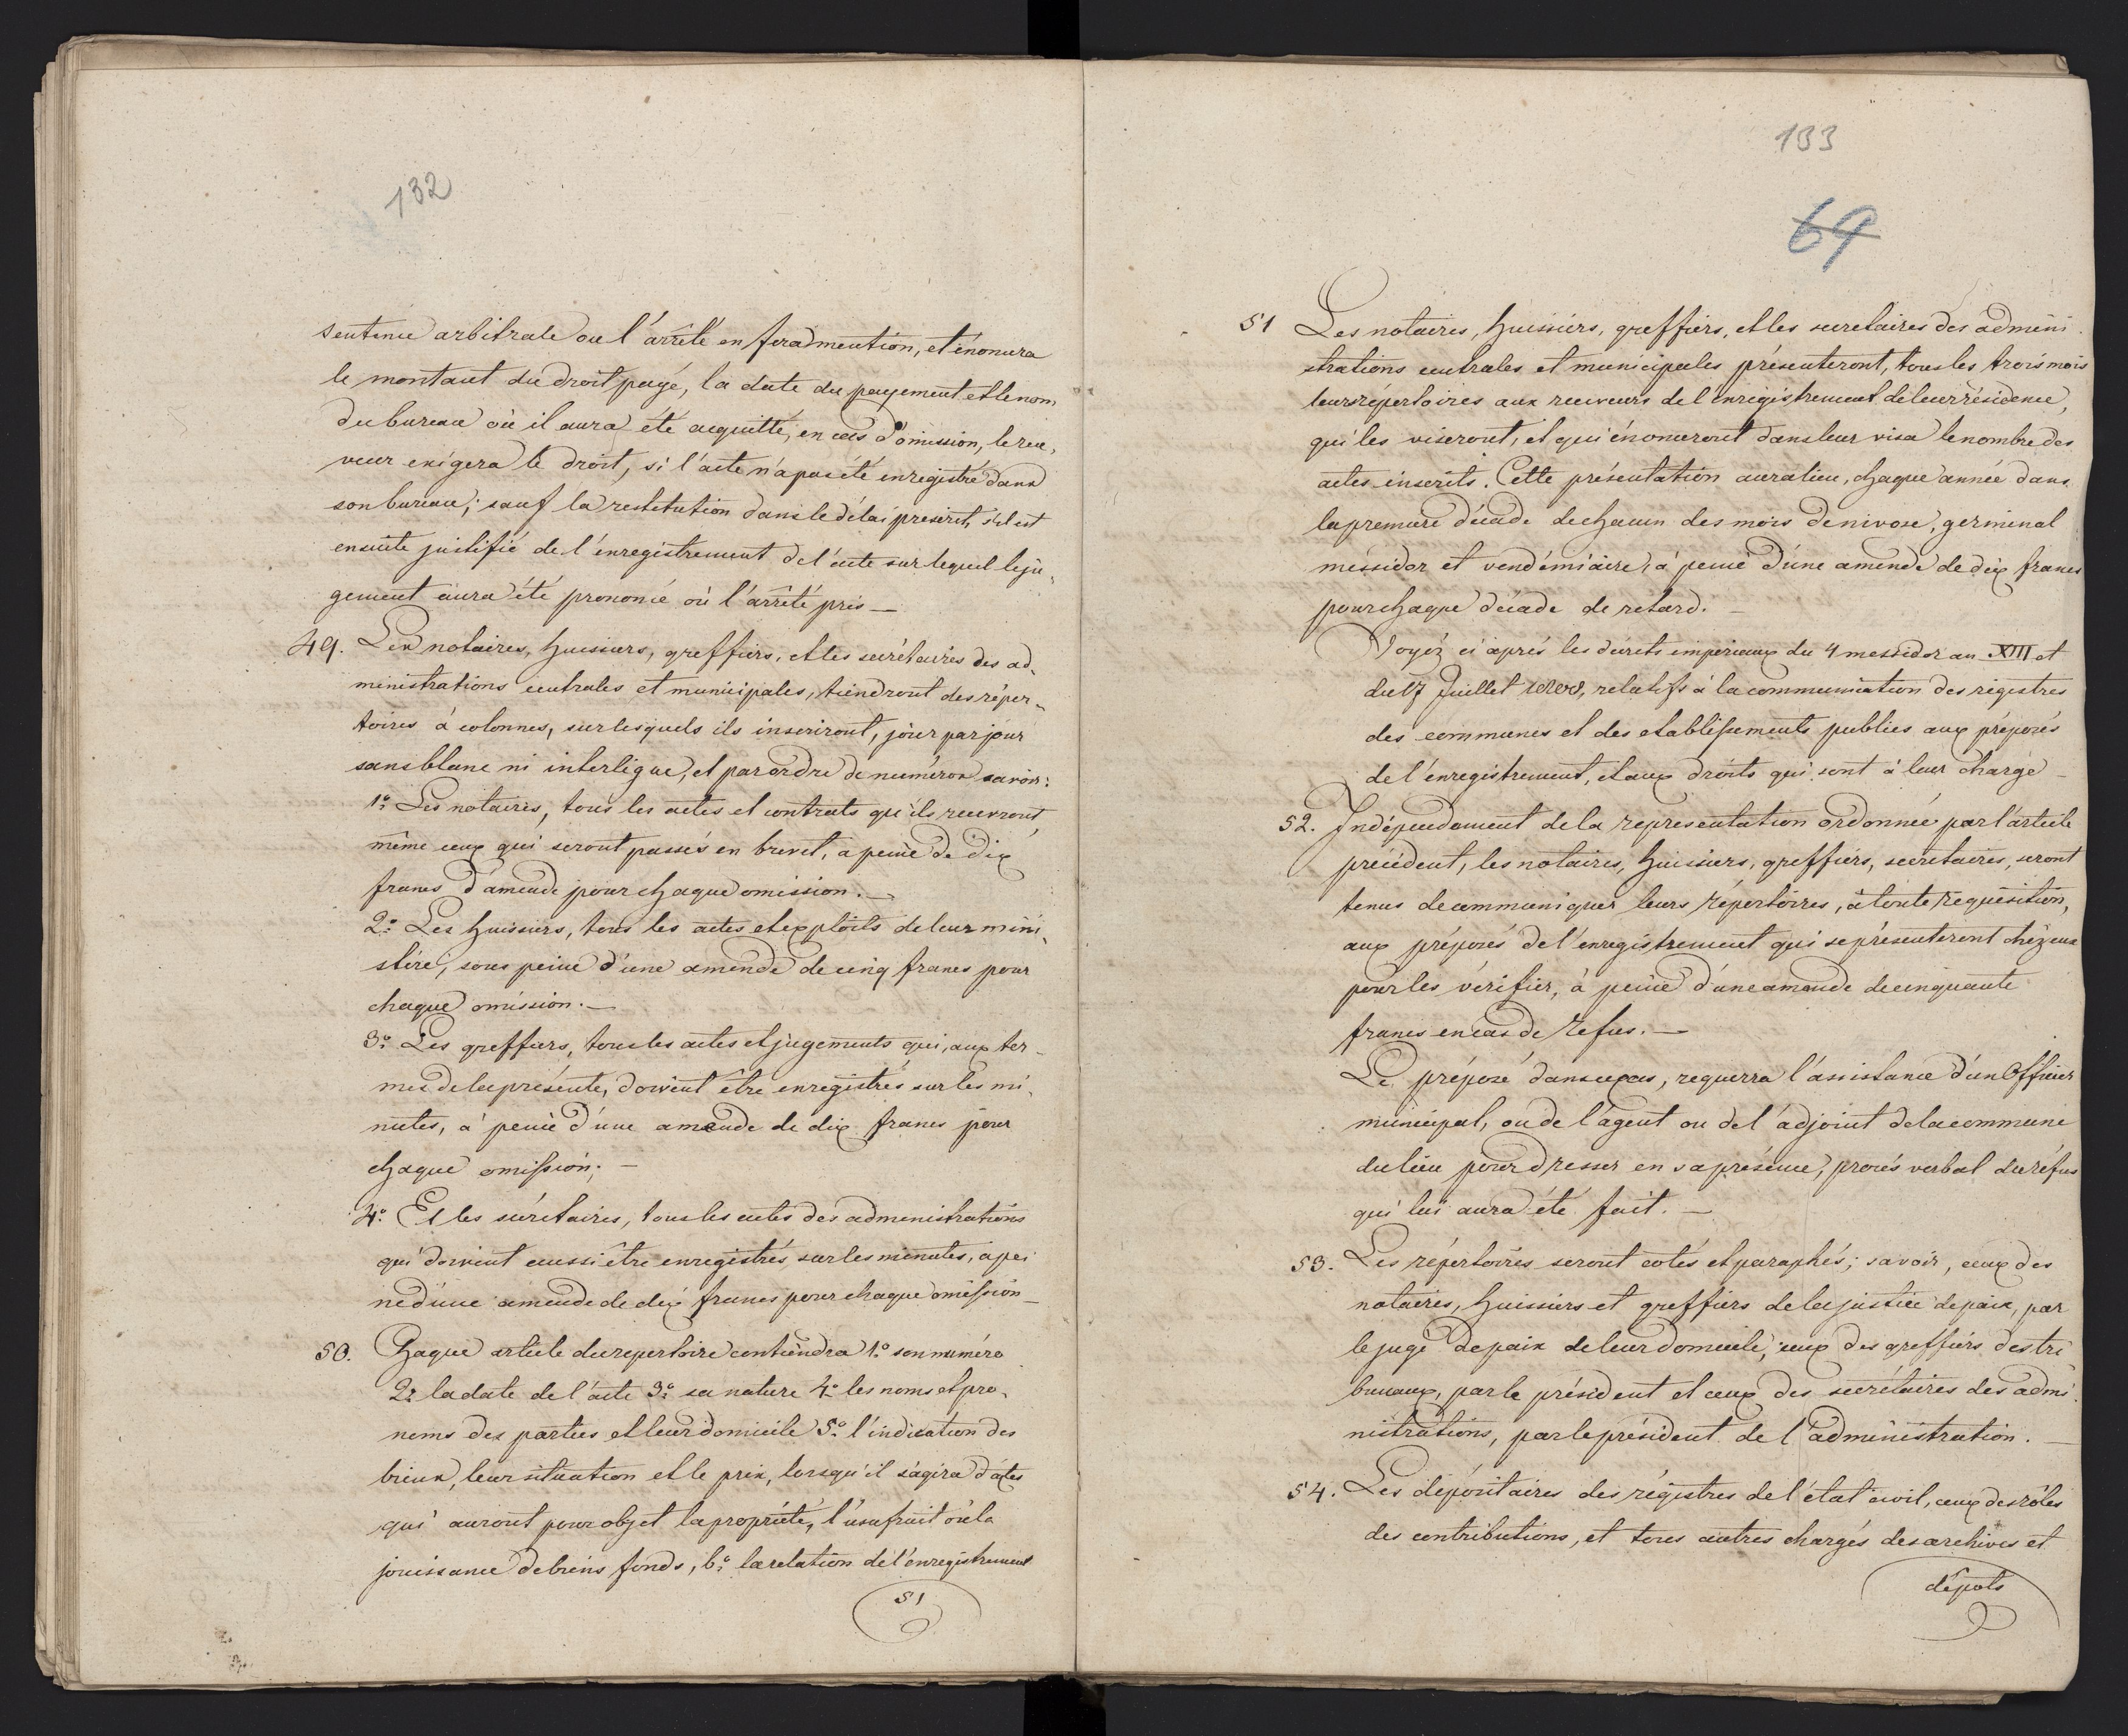 132
sentence arbitrale ou l'arrêté en fera mention, et énoncera
le montant du droit payé, la date du payement et le nom
du bureau où il aura été acquitté, en cas d'omission, le rece,
veur exigera le droit, si l'acte n'a pas été enregistré dans
son bureau; sauf la restitution dans le délai prescrit, s'il est
ensuite justifié de l'enregistrement de l'acte sur lequel le ju,
gement aura été prononcé où l'arrêté pris —
49. Les notaires, huissiers, greffiers, et les secrétaires des ad,
ministrations centrales et municipales, tiendront des réper,
toires à colonnes, sur lesquels ils inscriront, jour par jour
sans blanc ni interligne, et par ordre de numéros savoir:
1º. Les notaires, tous les actes et contrats qu'ils recevront,
même ceux qui seront passés en brevet, a peine de dix
francs d'amende pour chaque omission. —
2º. Les huissiers, tous les actes et exploits de leur mini,
stère, sous peine d'une amende de cinq francs pour
chaque omission. —
3º. Les greffiers, tous les actes et jugements qui, aux ter-
mes de la présente, doivent être enregistrés sur les mi,
nutes, à peine d'une amende de dix francs pour
chaque omission; —
4º. Et les secrétaires, tous les actes des administrations
qui doivent aussi être enregistrés sur les minutes, a pei
ne d'une amende de dix francs pour chaque omission —
50. Chaque article du repertoire contiendra 1º. son numéro
2º. la date de l'acte 3º. sa nature 4º. les noms et pre,
noms des parties et leur domicile 5º. l'indication des
biens, leur situation et le prix, lorsqu'il s'agira d'actes
qui auront pour objet la propriété, l'usufruit où la
jouissance de biens fonds, 6º. la relation de l'enregistrement
51
133
69
51 Les notaires, huissiers, greffiers, et les secretaires des admini
strations centrales et municipales présenteront, tous les trois mois
leurs répertoires aux receveurs de l'enregistrement de leur résidence,
qui les viseront, et qui énonceront dans leur visa le nombre des
actes inscrits. Cette présentation aura lieu, chaque année dans
la premiere décade de chacun des mois de nivose, germinal
messidor et vendémiaire, à peine d'une amende de dix francs
pour chaque décade de retard. —
Voyéz ci après les décrets impériaux du 4 messidor an XIII et
du 17 Juillet relatifs à la communication des régistres
des communes et des etablissements publics aux préposés
de l'enregistrement, et aux droits qui sont à leur charge —
52. Indépendament de la représentation ordonnée par l'article
précédent, les notaires, huissiers, greffiers, secrétaires, seront
tenus de communiquer leurs répertoires, à toute réquisition,
aux préposés de l'enregistrement qui se présenteront chéz eux
pour les vérifier, à peine d'une amande de cinquante
francs en cas de refus. —
Le préposé dans ce cas, requerra l'assistance d'un Officier
municipal, ou de l'agent ou de l'adjoint de la commune
du lieu pour dresser en sa présence, procés verbal du réfus
qui lui aura été fait. —
53. Les répertoires seront cotés et paraphés; savoir, ceux des
notaires, huissiers et greffiers de la justice de paix, par
le juge de paix de leur domicile, ceux des greffiers des tri
bunaux, par le président et ceux des secrétaires des admi
nistrations, par le président de l'administration. —
54. Les dépositaires des régistres de l'état civil, ceux des rôles
des contributions, et tous autres chargés des archives et
dépots